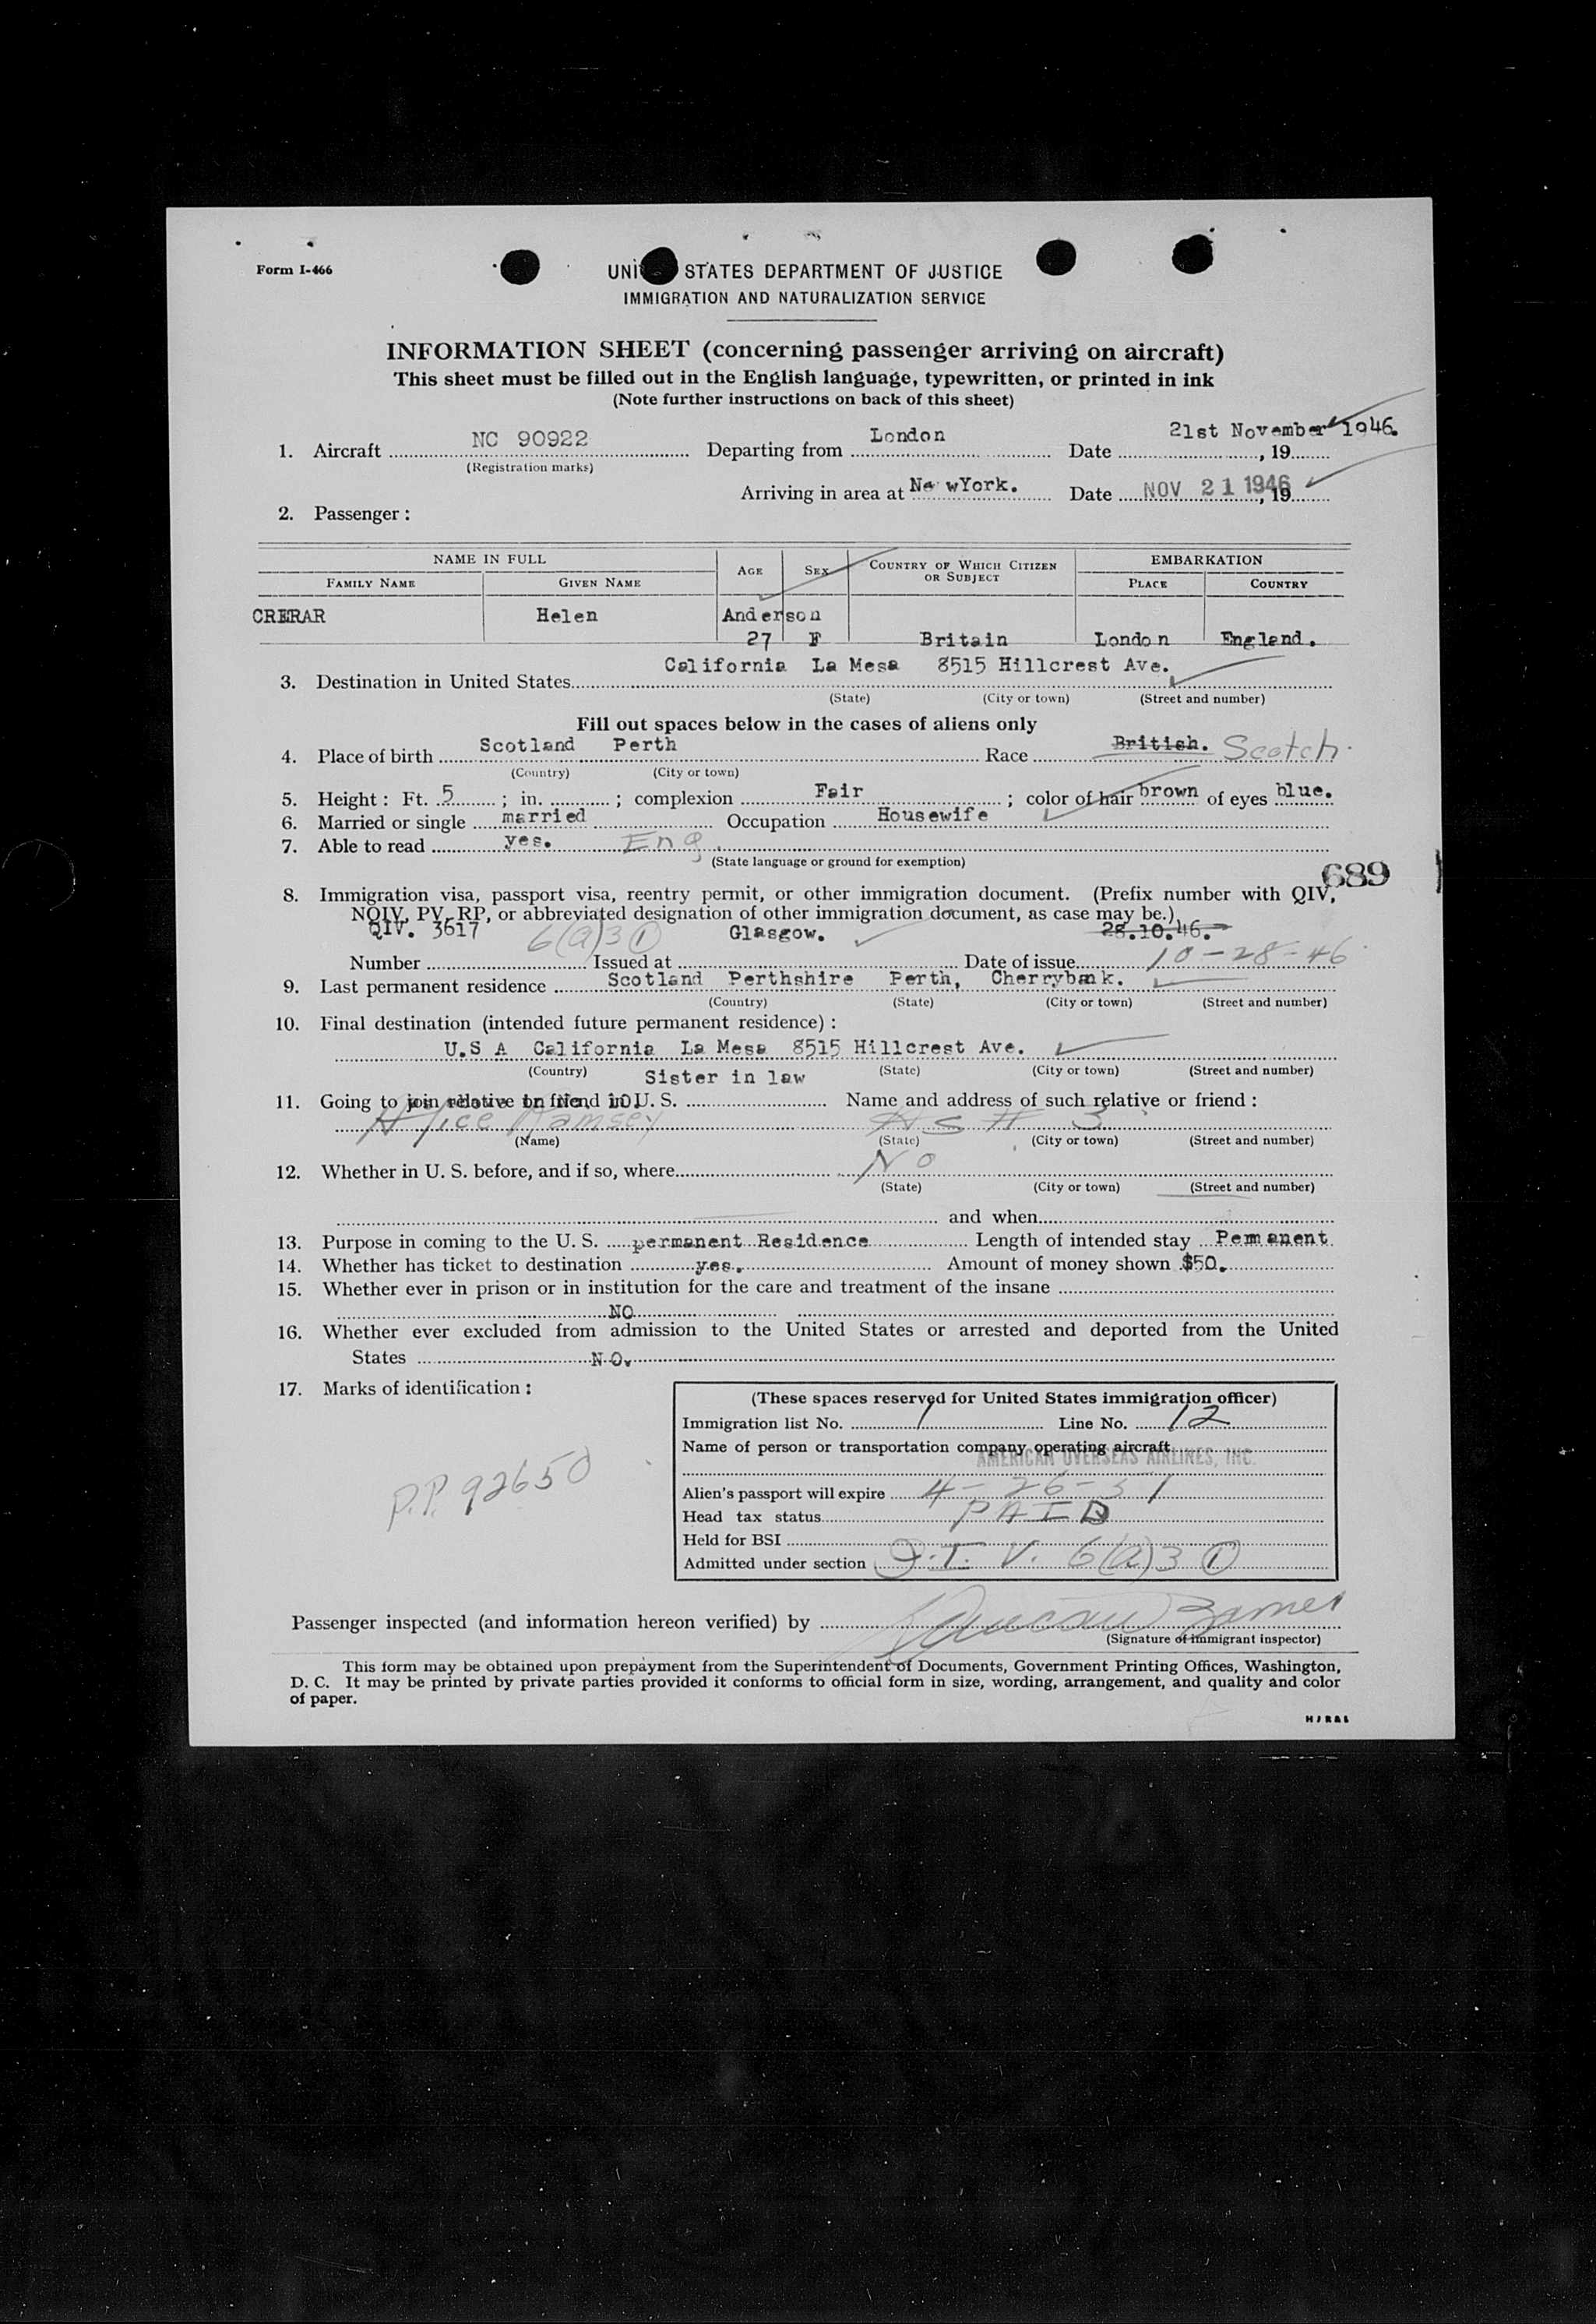 Form I-466
UNI STATES DEPARTMENT OF JUSTICE
IMMIGRATION AND NATURALIZATION SERVICE
INFORMATION SHEET (concerning passenger arriving on aircraft)
This sheet must be filled out in the English language, typewritten, or printed in ink
(Note further instructions on back of this sheet)
1. Aircraft NC 90922 Departing from London Date 21st November 1946. , 19
(Registration marks)
Arriving in area at Ne wYork. Date NOV 21 1946 , 19
2. Passenger :
NAME IN FULL AGE SEX COUNTRY OF WHICH CITIZEN OR SUBJECT EMBARKATION
FAMILY NAME GIVEN NAME PLACE COUNTRY
CRERAR Helen Anderson
27 F Britain London England.
California La Mesa 8515 Hillcrest Ave.
3. Destination in United States
(State) (City or town) (Street and number)
Fill out spaces below in the cases of aliens only
4. Place of birth Scotland Perth Race British. Scotch
(Country) (City or town)
5. Height : Ft. 5 ; in. ; complexion Fair ; color of hair brown of eyes blue.
6. Married or single married Occupation Housewife
7. Able to read yes. Eng
(State language or ground for exemption)
689
8. Immigration visa, passport visa, reentry permit, or other immigration document. (Prefix number with QIV,
NQIV, PV, RP, or abbreviated designation of other immigration document, as case may be.)
QIV. 3617 6(a)3 1 Glasgow. 28.10.46.
Number Issued at Date of issue 10-28-46
9. Last permanent residence Scotland Perthshire Perth, Cherrybank.
(Country) (State) (City or town) (Street and number)
10. Final destination (intended future permanent residence) :
U.S A California La Mesa 8515 Hillcrest Ave.
(Country) (State) (City or town) (Street and number)
Sister in law
11. Going to join relative or friend in U. S. Name and address of such relative or friend :
Ramsey AS # 3
(Name) (State) (City or town) (Street and number)
12. Whether in U. S. before, and if so, where No
(State) (City or town) (Street and number)
and when
13. Purpose in coming to the U. S. permanent Residence Length of intended stay Permanent
14. Whether has ticket to destination yes. Amount of money shown $50.
15. Whether ever in prison or in institution for the care and treatment of the insane
NO
16. Whether ever excluded from admission to the United States or arrested and deported from the United
States N O.
17. Marks of identification :
P.P. 92650
(These spaces reserved for United States immigration officer)
Immigration list No. 1 Line No. 12
Name of person or transportation company operating aircraft
AMERICAN OVERSEAS AIRLINES, INC.
Alien's passport will expire 4-26-51
Head tax status PAID
Held for BSI
Admitted under section Q.I.V. 6(a)3 1
Passenger inspected (and information hereon verified) by
(Signature of immigrant inspector)
This form may be obtained upon prepayment from the Superintendent of Documents, Government Printing Offices, Washington,
D. C. It may be printed by private parties provided it conforms to official form in size, wording, arrangement, and quality and color
of paper.